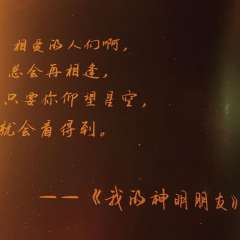 相爱的人们啊，
总会再相逢，
只要你仰望星空，
就会看得到。
——《我的神明朋友》